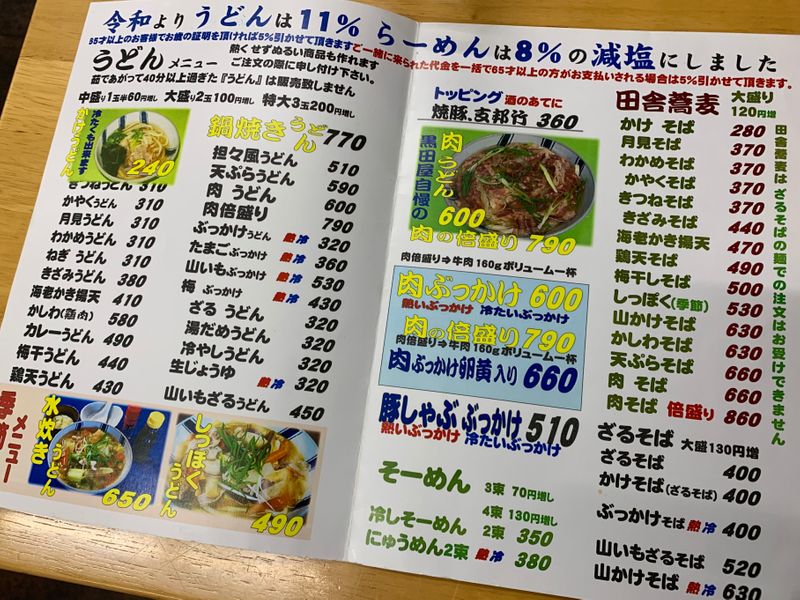 令和よりうどんは11% らーめんは8%の減塩にしました
65才以上のお客様でお歳の証明を頂ければ5%引かせて頂きますご一緒に来られた代金を一括で65才以上の方がお支払いされる場合は5%引かせて頂きます。
うどん メニュー
熱くせずぬるい商品も作れます
ご注文の際に申し付け下さい。
茹であがって40分以上過ぎた『うどん』は販売致しません
中盛り1玉半60円増し 大盛り2玉100円増し 特大3玉200円増し
冷たくも出来ます
かけうどん
240
きつねうどん 310
かやくうどん 310
月見うどん 310
わかめうどん 310
ねぎ うどん 310
きざみうどん 380
海老かき揚天 410
かしわ(鶏肉) 580
カレーうどん 490
梅干うどん 440
鶏天うどん 430
鍋焼きうどん 770
担々風うどん 510
天ぷらうどん 590
肉 うどん 600
肉倍盛り 790
ぶっかけうどん 熱冷 320
たまごぶっかけ 熱冷 360
山いもぶっかけ 熱冷 530
梅 ぶっかけ 熱冷 430
ざる うどん 320
湯だめうどん 320
冷やしうどん 320
生じょうゆ 熱冷 320
山いもざるうどん 450
季節メニュー
水炊きうどん
650
しっぽくうどん
490
トッピング 酒のあてに
焼豚、支那竹 360
肉うどん
黒田屋自慢の
600
肉の倍盛り 790
肉倍盛り⇒牛肉160gボリューム一杯
肉ぶっかけ 600
熱いぶっかけ 冷たいぶっかけ
肉の倍盛り 790
肉倍盛り⇒牛肉160gボリューム一杯
肉ぶっかけ卵黄入り 660
豚しゃぶぶっかけ 510
熱いぶっかけ 冷たいぶっかけ
そーめん 3束 70円増し
4束 130円増し
冷しそーめん 2束 350
にゅうめん2束 熱 380
田舎蕎麦 大盛り
120円増
かけ そば 280
月見そば 370
わかめそば 370
かやくそば 370
きつねそば 370
きざみそば 440
海老かき揚天 470
鶏天そば 490
梅干しそば 500
しっぽく(季節) 530
山かけそば 630
かしわそば 630
天ぷらそば 660
肉 そば 660
肉そば 倍盛り 860
田舎蕎麦は、ざるそばの麺での注文はお受けできません
ざるそば 大盛130円増
ざるそば 400
かけそば(ざるそば) 400
ぶっかけそば 熱冷 400
山いもざるそば 520
山かけそば 熱冷 630